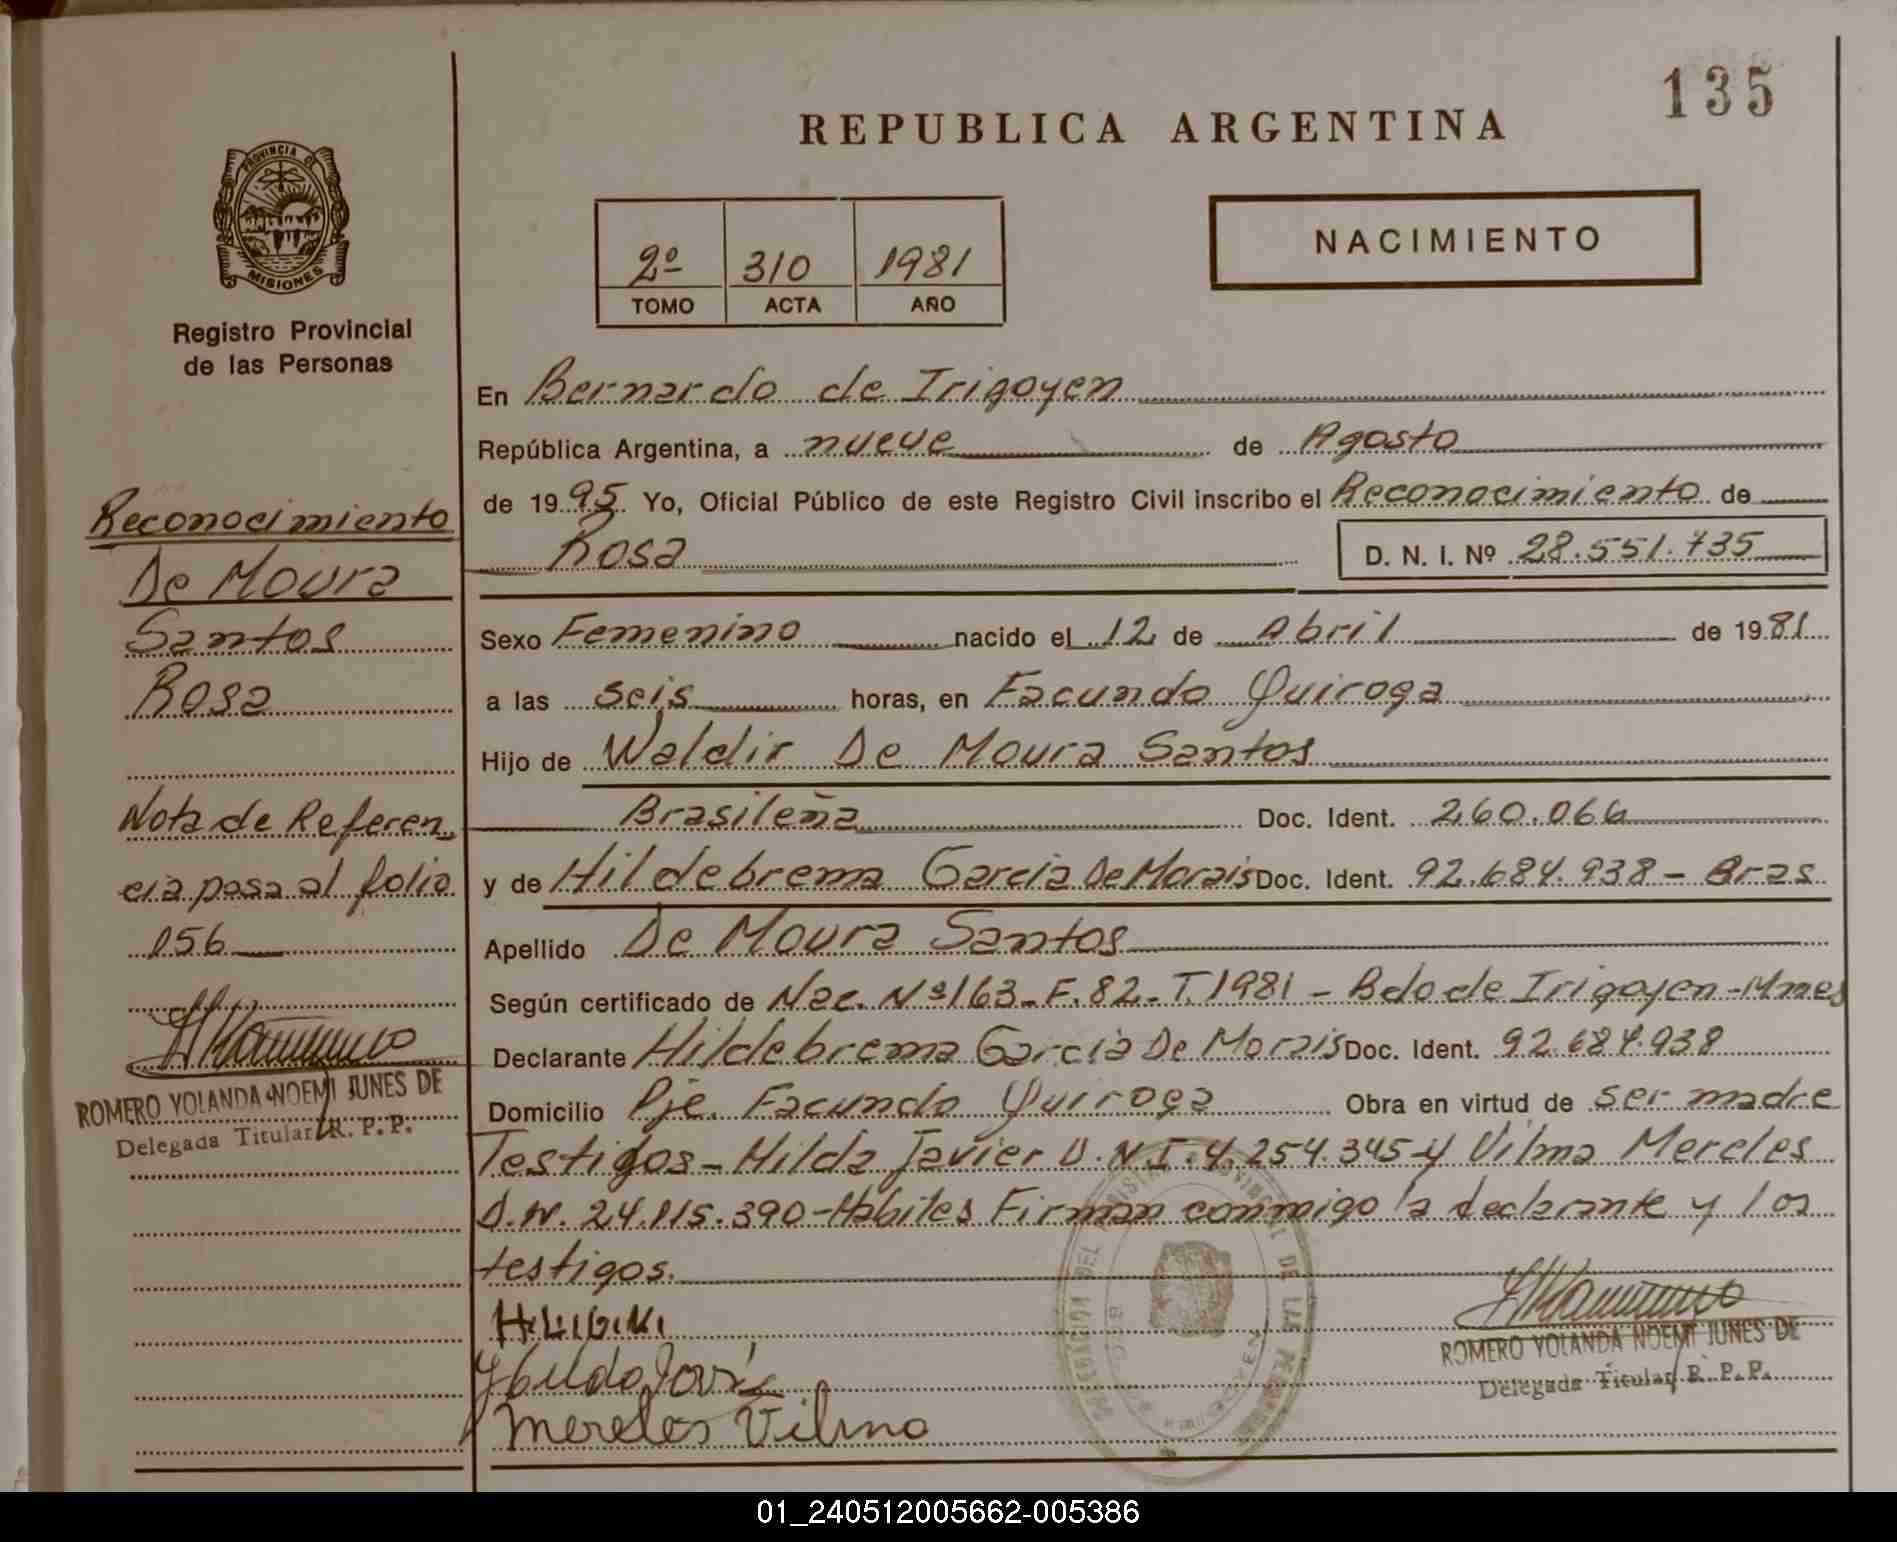 135
REPUBLICA ARGENTINA
PROVINCIA DE
MISIONES
Registro Provincial
de las Personas
2º 310 1981
TOMO ACTA AÑO
NACIMIENTO
En Bernardo de Irigoyen
República Argentina, a nueve de Agosto
de 1995 Yo, Oficial Público de este Registro Civil inscribo el Reconocimiento de
Rosa D. N. I. Nº 28.551.735
Sexo Femenino nacido el 12 de Abril de 1981
a las seis horas, en Facundo Quiroga
Hijo de Waldir De Moura Santos
Brasileña Doc. Ident. 260.066
y de Hildebrema Garcia De Morais Doc. Ident. 92.684.938 - Bras
Apellido De Moura Santos
Según certificado de Nac. Nº 163 - F. 82 - T. 1981 - Bdo de Irigoyen - Mnes
Declarante Hildebrema Garcia De Morais Doc. Ident. 92.684.938
Domicilio Pje. Facundo Quiroga Obra en virtud de ser madre
Testigos - Hilda Javier D.N.I. 4.254.345 y Vilma Mereles
D.N. 24.115.390 - Hábiles Firman conmigo la declarante y los
testigos.
Mereles Vilma
ROMERO YOLANDA NOEMI JUNES DE
Delegada Titular R. P. P.
Reconocimiento
De Moura
Santos
Rosa
Nota de Referen
cia pasa al folio
156
ROMERO YOLANDA NOEMI JUNES DE
Delegada Titular R. P. P.
01_240512005662-005386